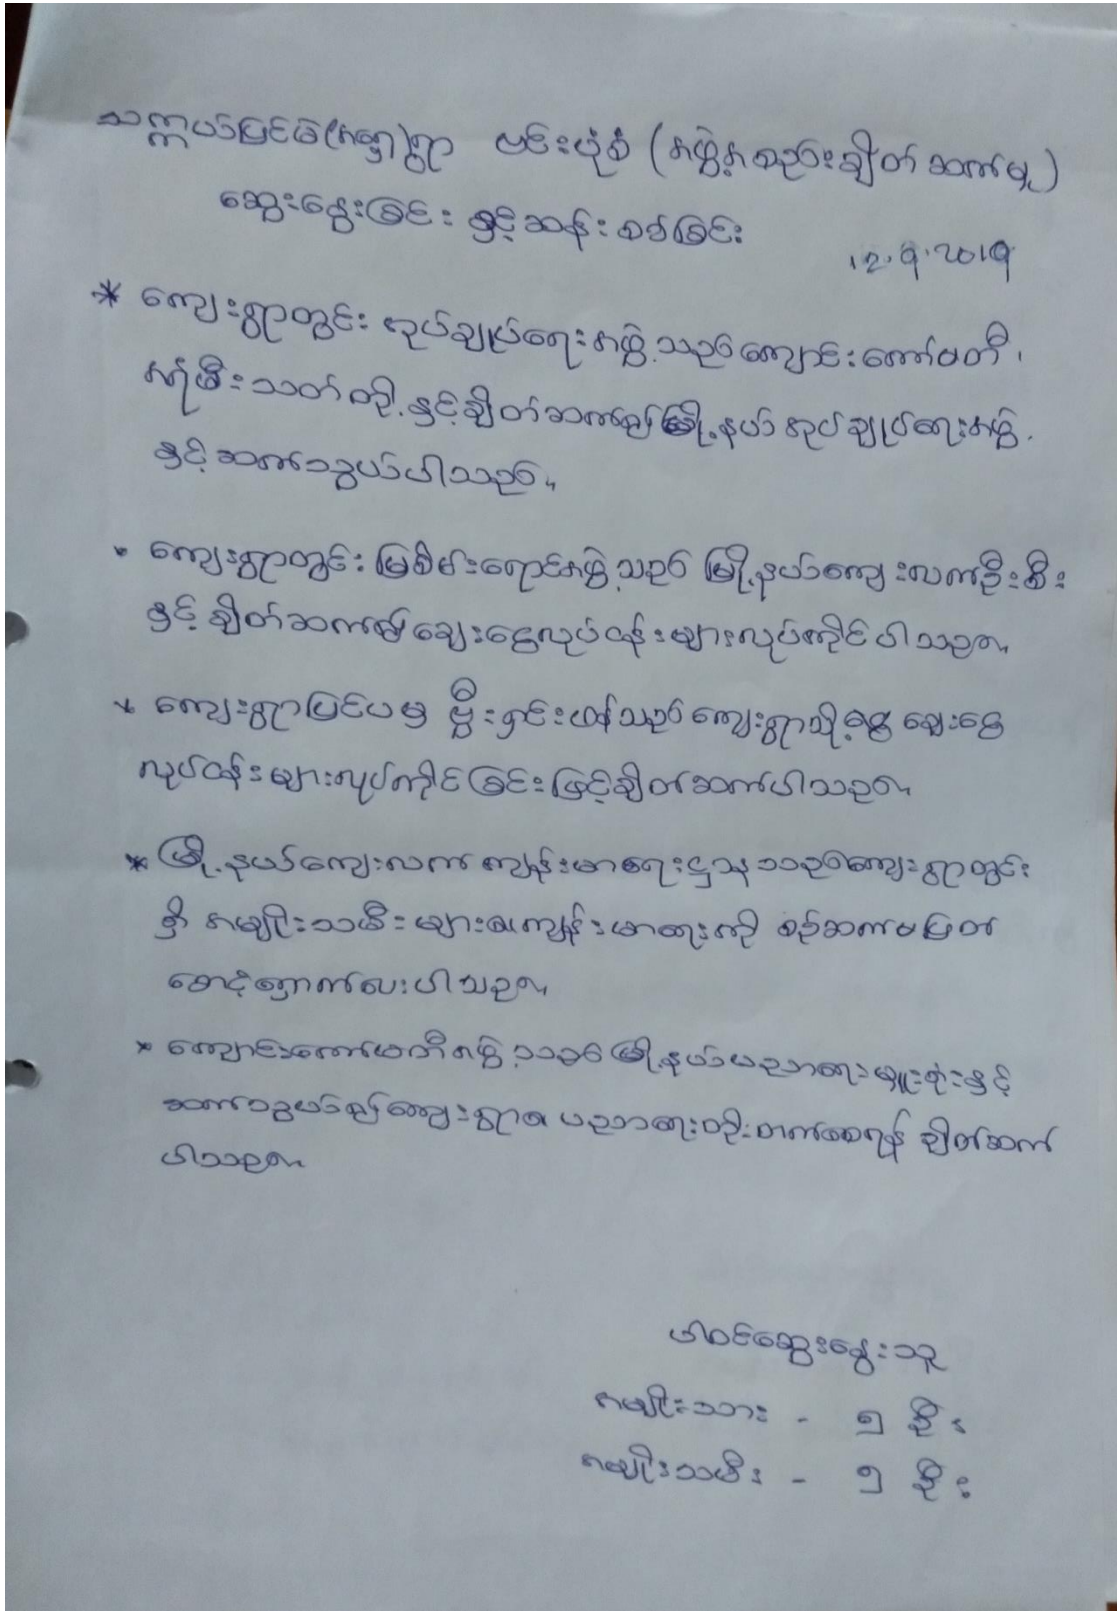 သက္ကယ်ပြင်ဝ(အရှေ့)ရွာ ဗင်းပုံစံ (အဖွဲ့အစည်းချိတ်ဆက်မှု)
ဆွေးနွေးခြင်း နှင့်ဆန်းစစ်ခြင်း
12.9.2019
* ကျေးရွာတွင်း အုပ်ချုပ်ရေးအဖွဲ့သည် ကျောင်းကော်မတီ၊
အရံမီးသတ်တို့နှင့်ချိတ်ဆက်၍မြို့နယ်အုပ်ချုပ်ရေးအဖွဲ့
နှင့်ဆက်သွယ်ပါသည်။
* ကျေးရွာတွင်း မြစိမ်းရောင်အဖွဲ့သည် မြို့နယ်ကျေးလက်ဦးစီး
နှင့် ချိတ်ဆက်၍ ချေးငွေလုပ်ငန်းများလုပ်ကိုင်ပါသည်။
* ကျေးရွာပြင်ပမှ မှီးရှင်းဟန်သည် ကျေးရွာသို့ငွေချေးငွေ
လုပ်ငန်းများလုပ်ကိုင်ခြင်းဖြင့်ချိတ်ဆက်ပါသည်။
* မြို့နယ်ကျေးလက် ကျန်းမာရေးဌာန သည်ကျေးရွာတွင်း
ရှိ အမျိုးသမီးများ၏ကျန်းမာရေးကို စဉ်ဆက်မပြတ်
စောင့်ရှောက်ပေးပါသည်။
* ကျောင်းကော်မတီအဖွဲ့သည် မြို့နယ်ပညာရေးမှူးရုံးနှင့်
ဆက်သွယ်၍ကျေးရွာ၏ ပညာရေးတိုးတက်စေရန် ချိတ်ဆက်
ပါသည်။
ပါဝင်ဆွေးနွေးသူ
အမျိုးသား - ၅ ဦး
အမျိုးသမီး - ၅ ဦး